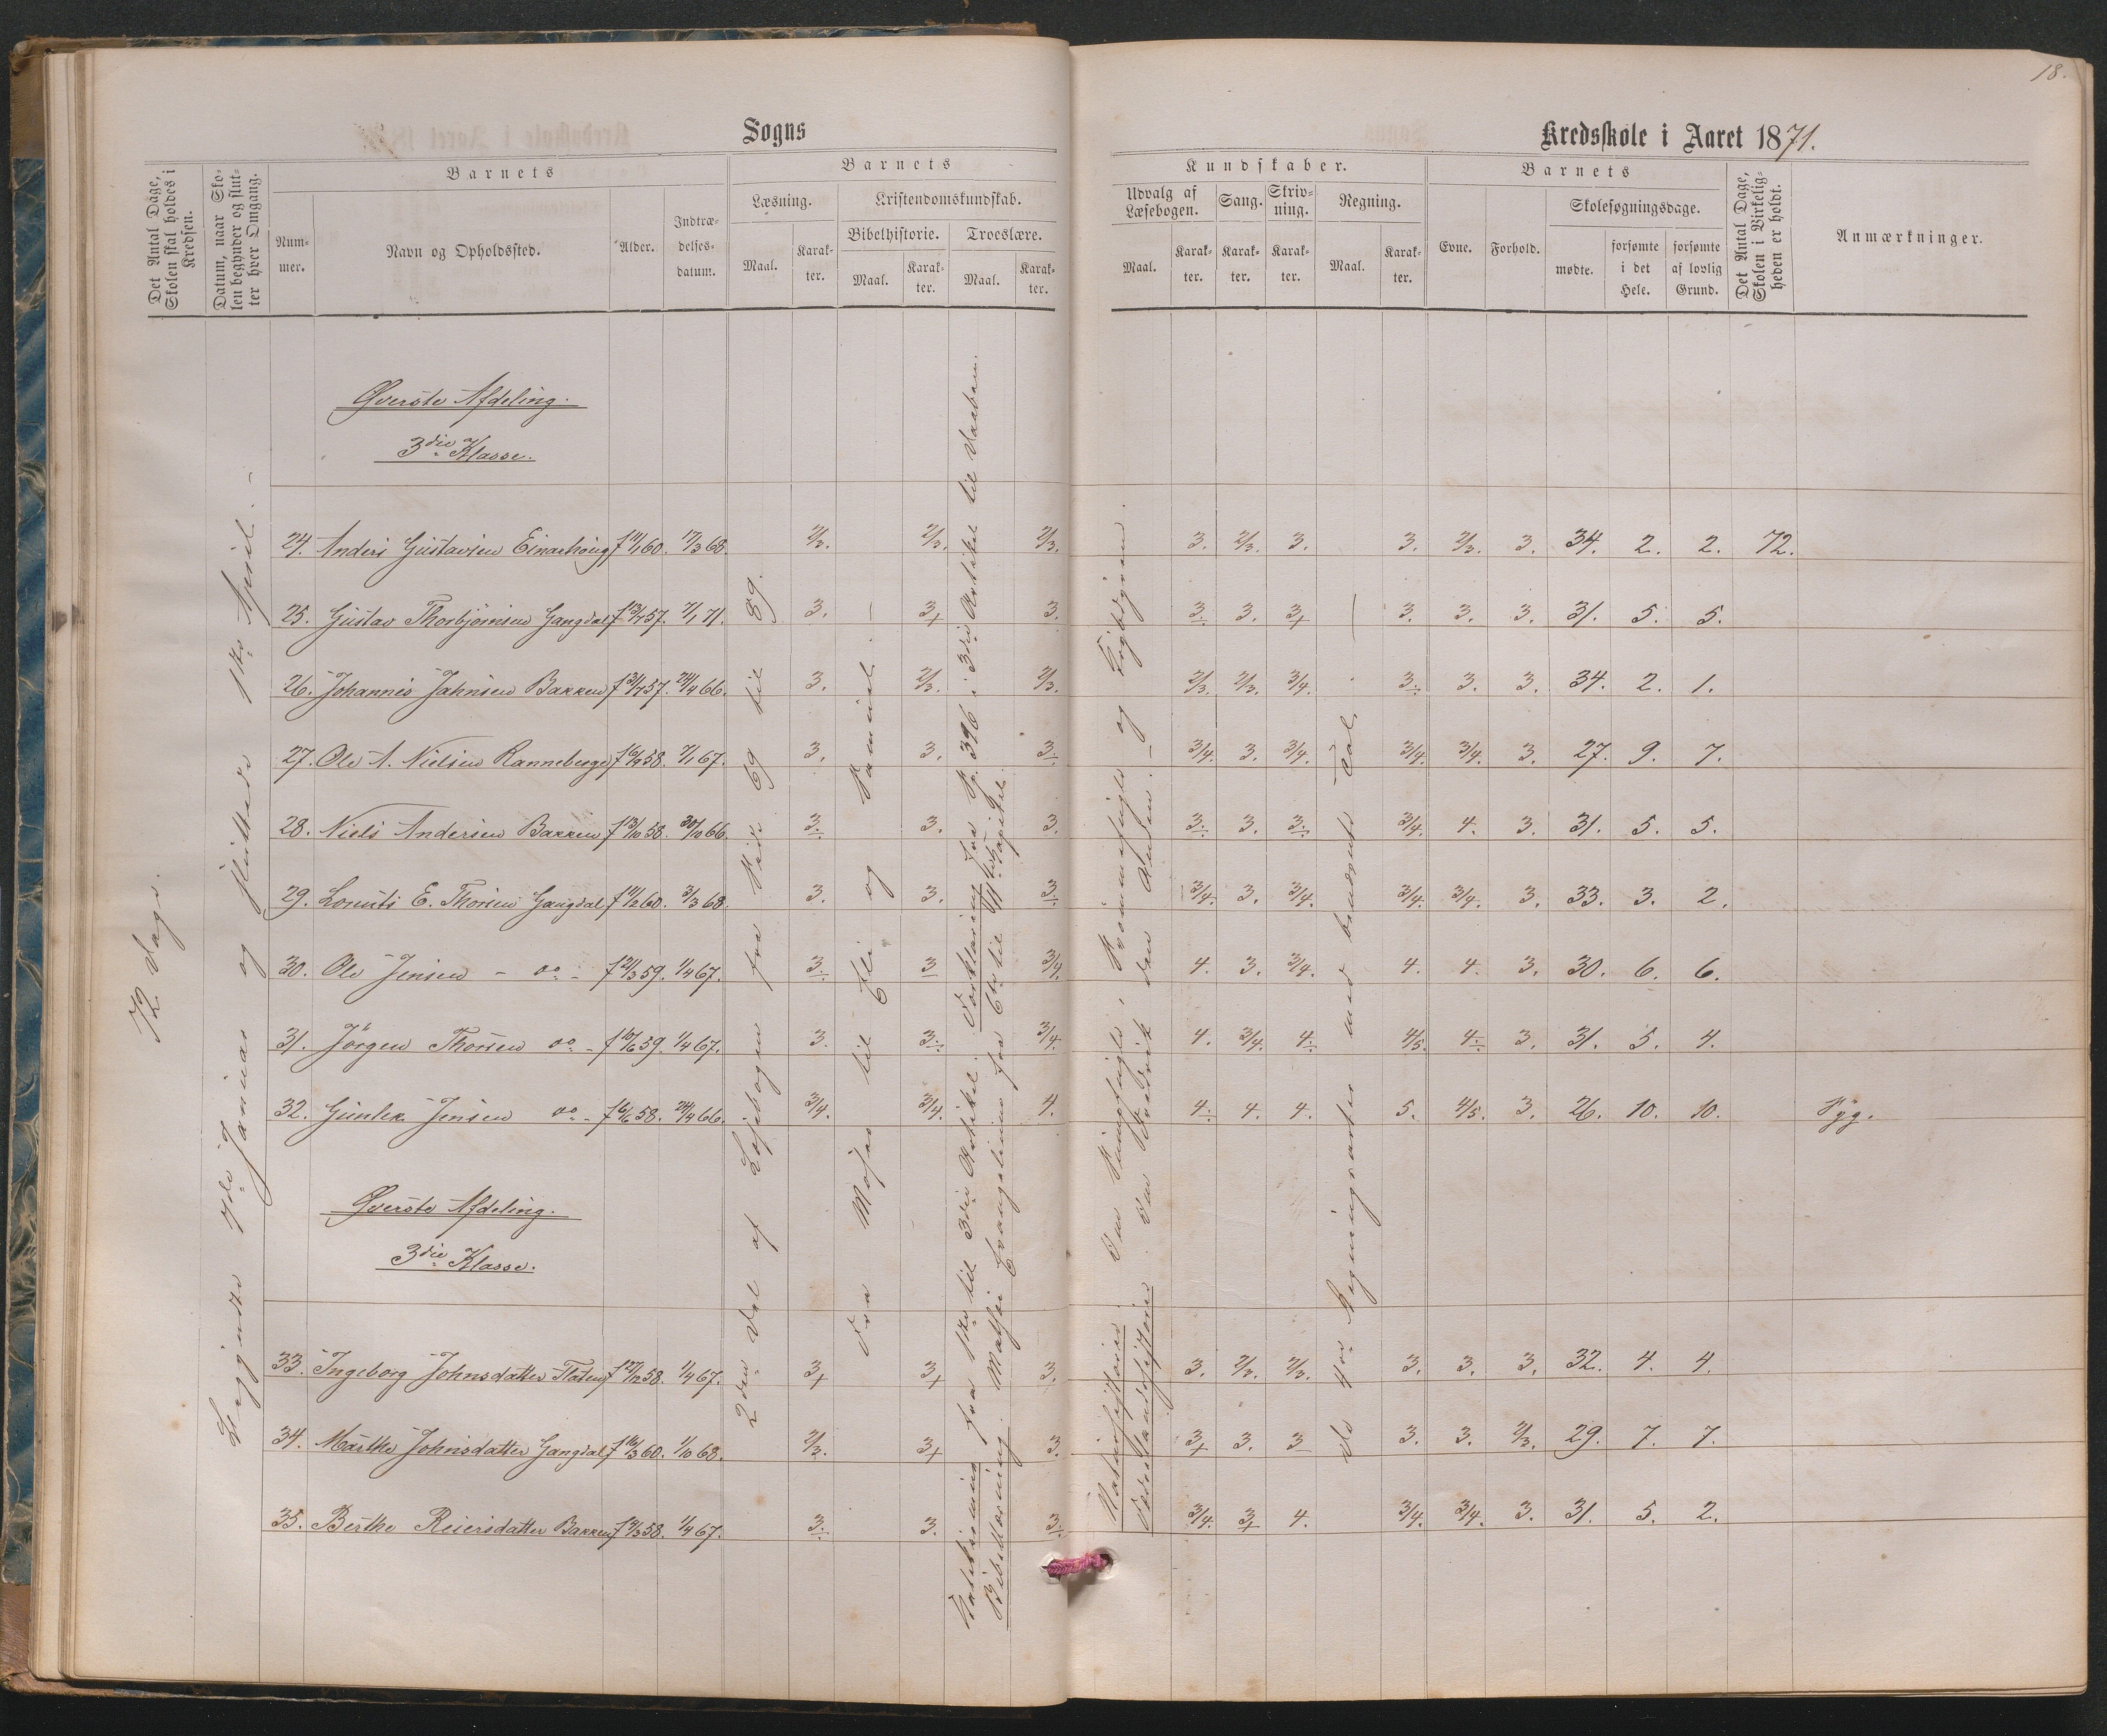 18.
Sogns
Kredsskole i Aaret 1871.
Det Antal Dage, Skolen skal holdes i Kredsen.
Datum, naar Skolen begynder og slutter hver Omgang.
Barnets
Nummer.
Navn og Opholdssted.
Alder.
Indtrædelsesdatum.
Barnets
Læsning.
Maal.
Karakter.
Kristendomskundskab.
Bibelhistorie.
Maal.
Karakter.
Troeslære.
Maal.
Karakter.
Kundskaber.
Udvalg af Læsebogen.
Maal.
Karakter.
Sang.
Karakter.
Skrivning.
Karakter.
Regning.
Maal.
Karakter.
Barnets
Evne.
Forhold.
Skolesøgningsdage.
mødte.
forsømte i det Hele.
forsømte af lovlig Grund.
Det Antal Dage, Skolen i Virkeligheden er holdt.
Anmærkninger.
72 Dage.
Begyndte 7de Januar og sluttede 1ste April.
2den Del af Læsebogen fra Side 69 til 89.
Fra Moses til Eli og Samuel.
Katekismus fra 1ste til 3die Artikel. Forklaring fra Sp. 396 i 3die Artikel til Daaben.
Bibellæsning. Mathæi Evangelium fra 6te til Kapitel.
Naturhistorie: Om Rungfugle, Svømmefugle og Krybdyrene.
Fædrelandshistorie: Om Fredrik den Anden.
De 4re Regningsarter med benævnte Tal.
Øverste Afdeling.
3die Klasse.
24. Anders Gustavsen Einarhoug f 11/1 60. 17/3 68. 2/3. 2/3. 2/3. 3. 2/3. 3. 3. 2/3. 3. 34. 2. 2. 72.
25. Gustav Thorbjørnsen Gangdal f 13/7 57. 7/1 71. 3. 3+ 3. 3. 3. 3+ 3. 3. 3. 31. 5. 5.
26. Johannes Jahnsen Bakken f 31/7 57. 24/4 66. 3. 2/3. 2/3. 2/3. 2/3. 3/4. 3. 3. 3. 34. 2. 1.
27. Ole A. Nielsen Ranneberge f 16/9 58. 7/1 67. 3. 3. 3. 3/4. 3. 3/4. 3/4. 3/4. 3. 27. 9. 7.
28. Niels Andersen Bakken f 13/10 58. 30/10 66. 3. 3. 3. 3. 3. 3. 3/4. 4. 3. 31. 5. 5.
29. Lorents E. Thorsen Gangdal f 11/2 60. 3/3 68. 3. 3. 3. 3/4. 3. 3/4. 3/4. 3/4. 3. 33. 3. 2.
30. Ole Jensen - do - f 21/3 59. 1/4 67. 3. 3 3/4. 4. 3. 3/4. 4. 4. 3. 30. 6. 6.
31. Jörgen Thorsen do - f 10/6 59. 1/4 67. 3. 3. 3/4. 4. 3/4. 4. 4/5. 4. 3. 31. 5. 4.
32. Gunlek Jensen do - f 6/6 58. 24/4 66. 3/4. 3/4. 4. 4. 4. 4. 5. 4/5. 3. 26. 10. 10. Syg.
Øverste Afdeling.
3die Klasse.
33. Ingeborg Johnsdatter Flaten f 27/12 58. 1/4 67. 3+ 3+ 3. 3. 2/3. 2/3. 3. 3. 3. 32. 4. 4.
34. Marthe Johnsdatter Gangdal f 16/3 60. 1/10 68. 2/3. 3+ 3. 3+ 3. 3 3. 3. 2/3. 29. 7. 7.
35. Berthe Reiersdatter Bakken f 19/3 58. 1/4 67. 3. 3. 3. 3/4. 3+ 4. 3/4. 3/4. 3. 31. 5. 2.